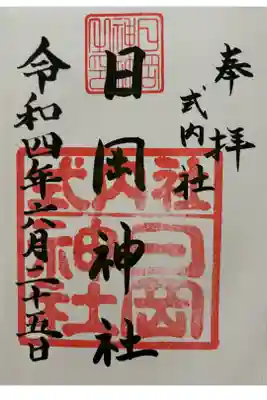 奉拝
式内社
日岡神社
令和四年六月二十五日
式内社
日岡神社